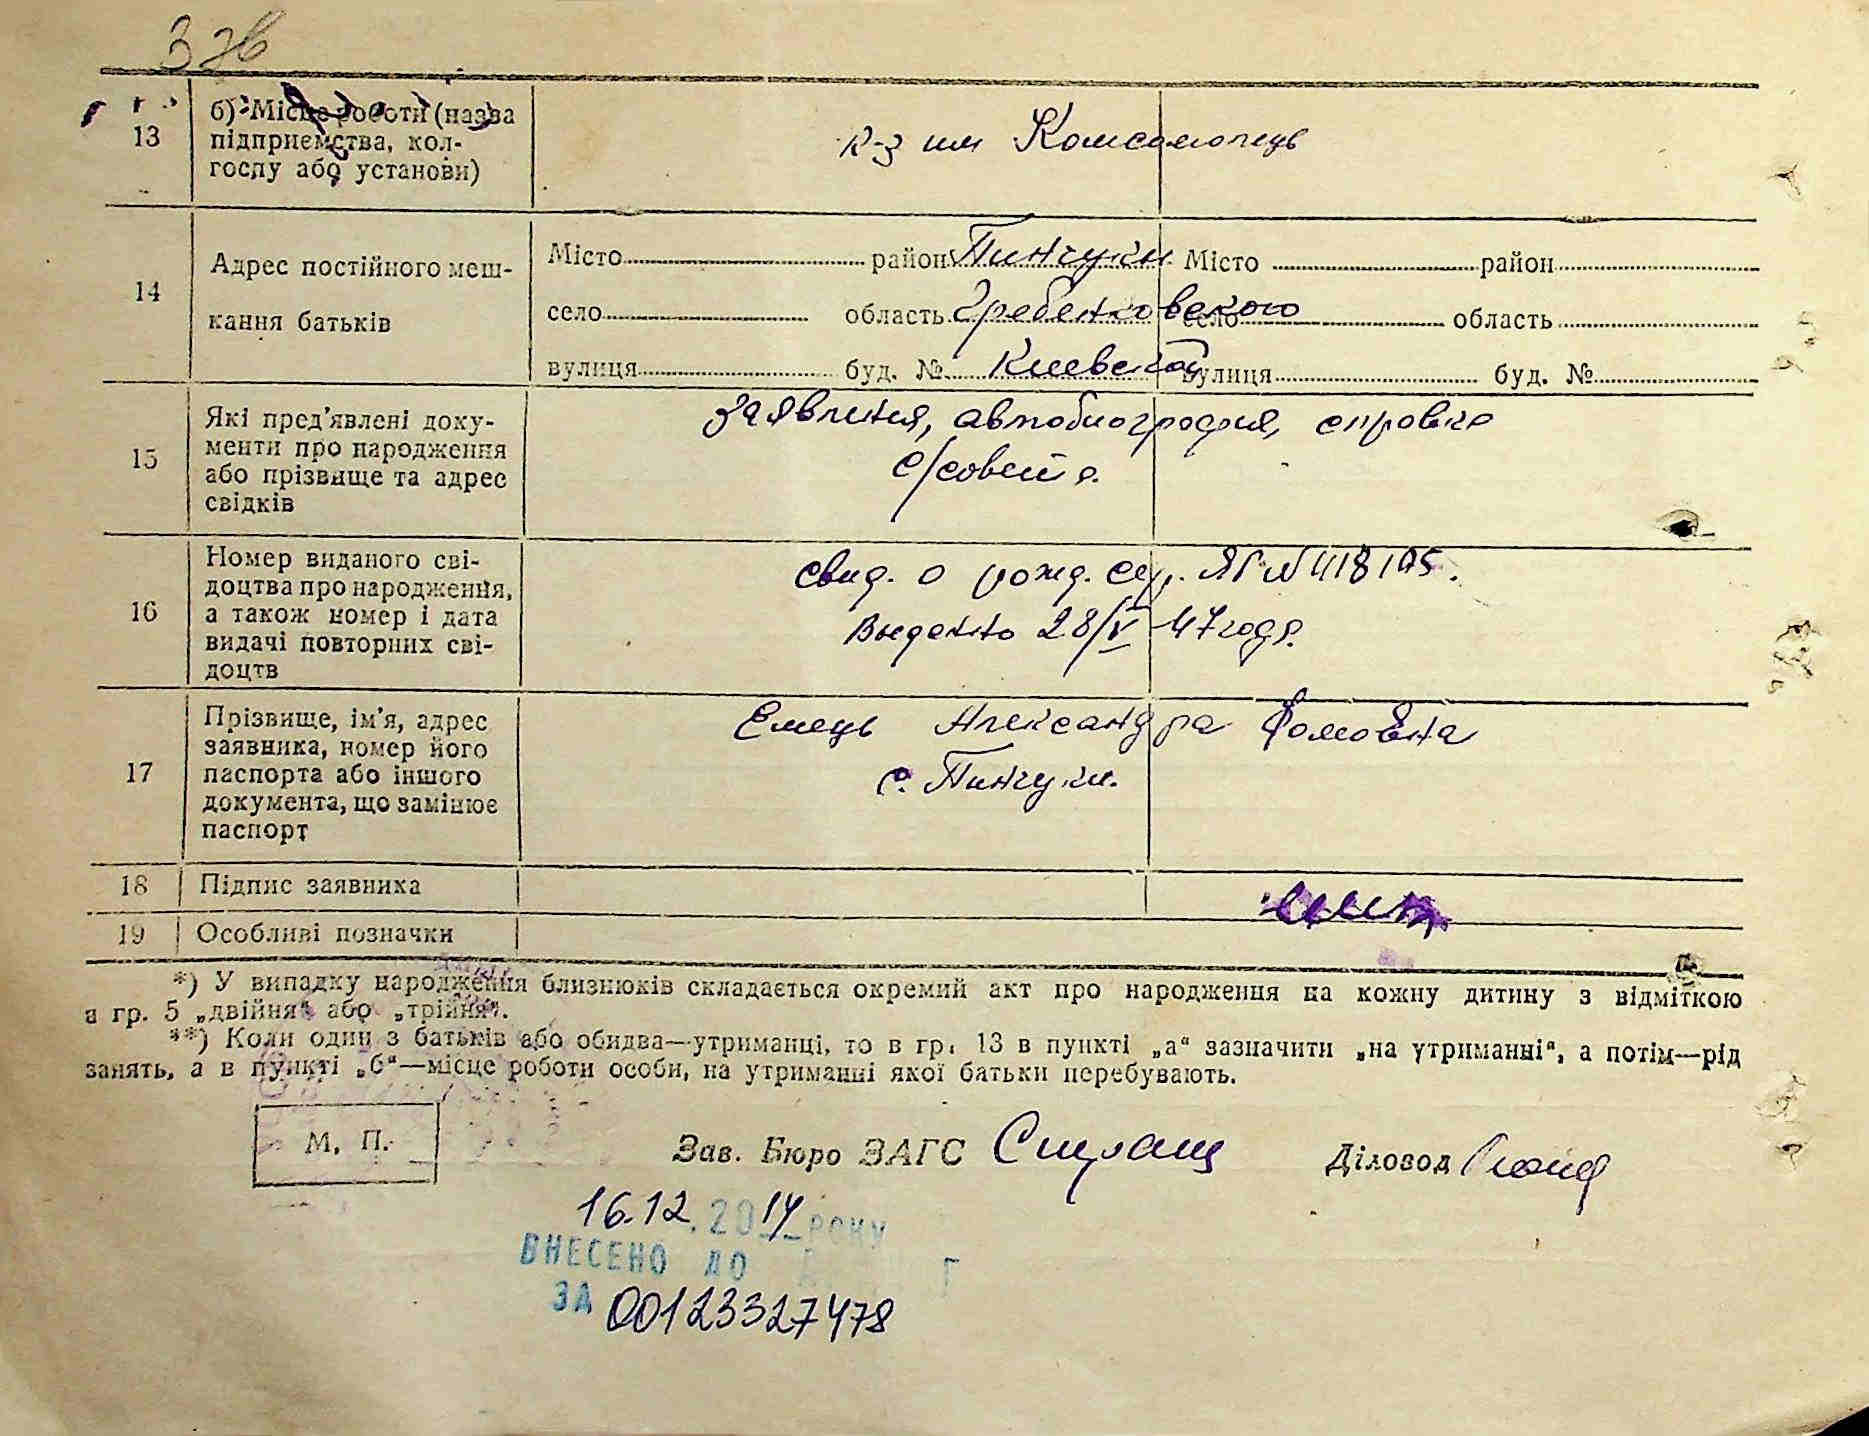 37в
13
б) Місце роботи (назва
підприємства, кол-
госпу або установи)
к-з им Комсомолець
14
Адрес постійного меш-
кання батьків
Місто район Пинчуки Місто район
село область Гребенковского село область
вулиця буд. № Киевской вулиця буд. №
15
Які пред'явлені доку-
менти про народження
або прізвище та адрес
свідків
заявления, автобиография, справка
с/совета.
16
Номер виданого сві-
доцтва про народження,
а також номер і дата
видачі повторних сві-
доцтв
свид. о рожд. сер. ЯГ №418195.
Выданно 28/V-47 года.
17
Прізвище, ім'я, адрес
заявника, номер його
паспорта або іншого
документа, що замінює
паспорт
Емець Александра Фомовна
с. Пинчуки.
18 Підпис заявника
19 Особливі позначки
*) У випадку народження близнюків складається окремий акт про народження на кожну дитину з відміткою
в гр. 5 „двійня“ або „трійня“.
**) Коли один з батьків або обидва—утриманці, то в гр. 13 в пункті „а“ зазначити „на утриманні“, а потім—рід
занять, а в пункті „б“—місце роботи особи, на утриманні якої батьки перебувають.
М. П.
Зав. Бюро ЗАГС Діловод
16.12.2014 РОКУ
ВНЕСЕНО ДО Г
ЗА 00123327478